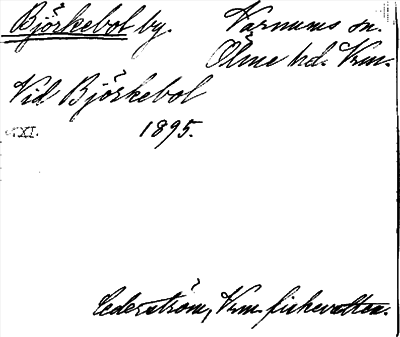 Björkebol by. Varnums sn.
Ölme hd. Vrm.
Vid Björkebol
XI. 1895.
Cederström, Vrm. fiskevatten.